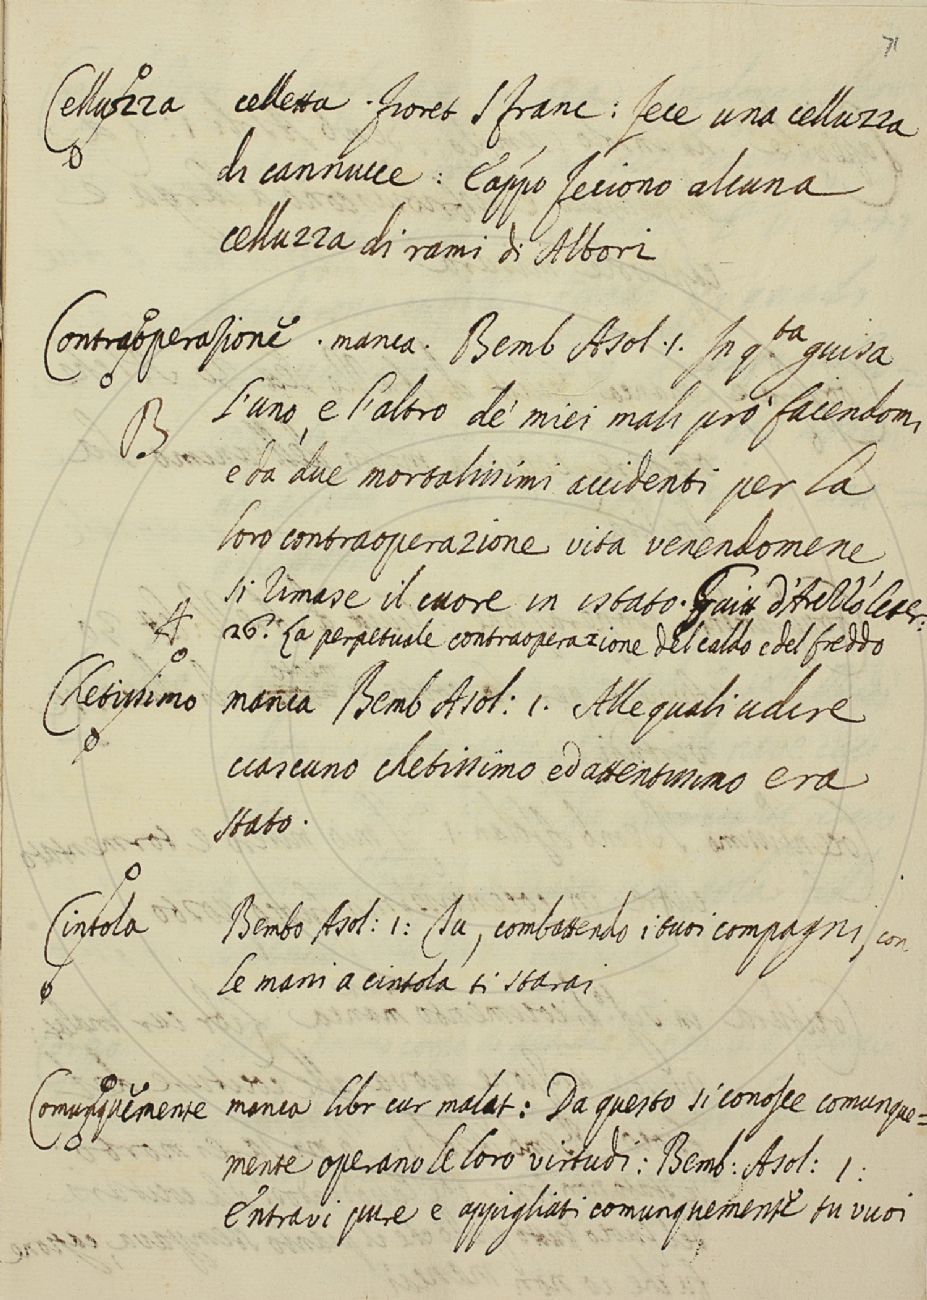 71
Celluzza celletta. Fioret S franc: fece una celluzza
di cannucce: E appo feciono alcuna
celluzza di rami di Albori
Contraoperazione. manca. Bemb Asol. 1. In q.ta guisa
l'uno, e l'altro de' miei mali pro facendomi
B
e da due mortalissimi accidenti per la
loro contraoperazione vita venendomene
si rimase il cuore in istato. Guitt d'Arezzo leter:
A 26. La perpetuale contraoperazione del caldo e del freddo
Chetissimo manca Bemb Asol: 1. Alle quali udire
ciascuno chetissimo ed attentissimo era
stato.
Cintola Bembo Asol: 1: Tu, combattendo i tuoi compagni, con
le mani a cintola ti starai
Comunquemente manca libr cur malat: Da questo si conosce comunque=
mente operano le loro virtudi: Bemb: Asol: 1:
Entravi pure e appigliati comunquemente tu vuoi